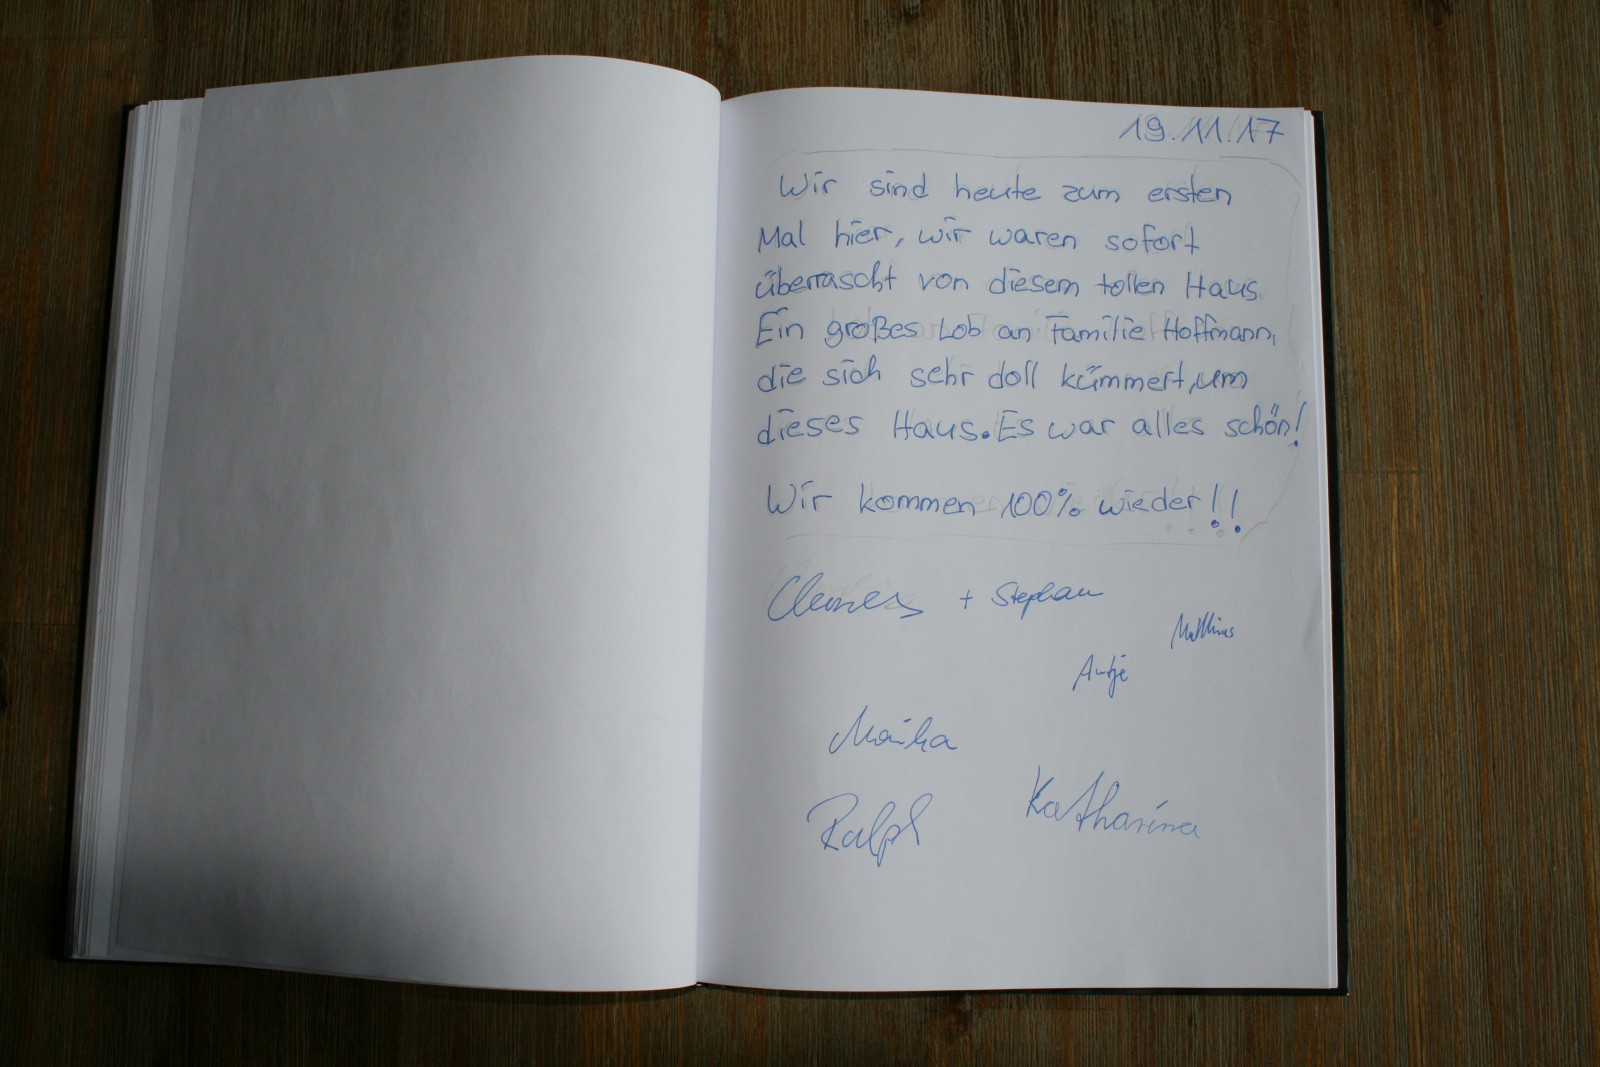 19.11.17
Wir sind heute zum ersten
Mal hier, wir waren sofort
überrascht von diesem tollen Haus
Ein großes Lob an Familie Hoffmann,
die sich sehr doll kümmert, um
dieses Haus. Es war alles schön!
Wir kommen 100% wieder!!
Clemens + Stephan
Matthias
Antje
Maika
Ralph
Katharina